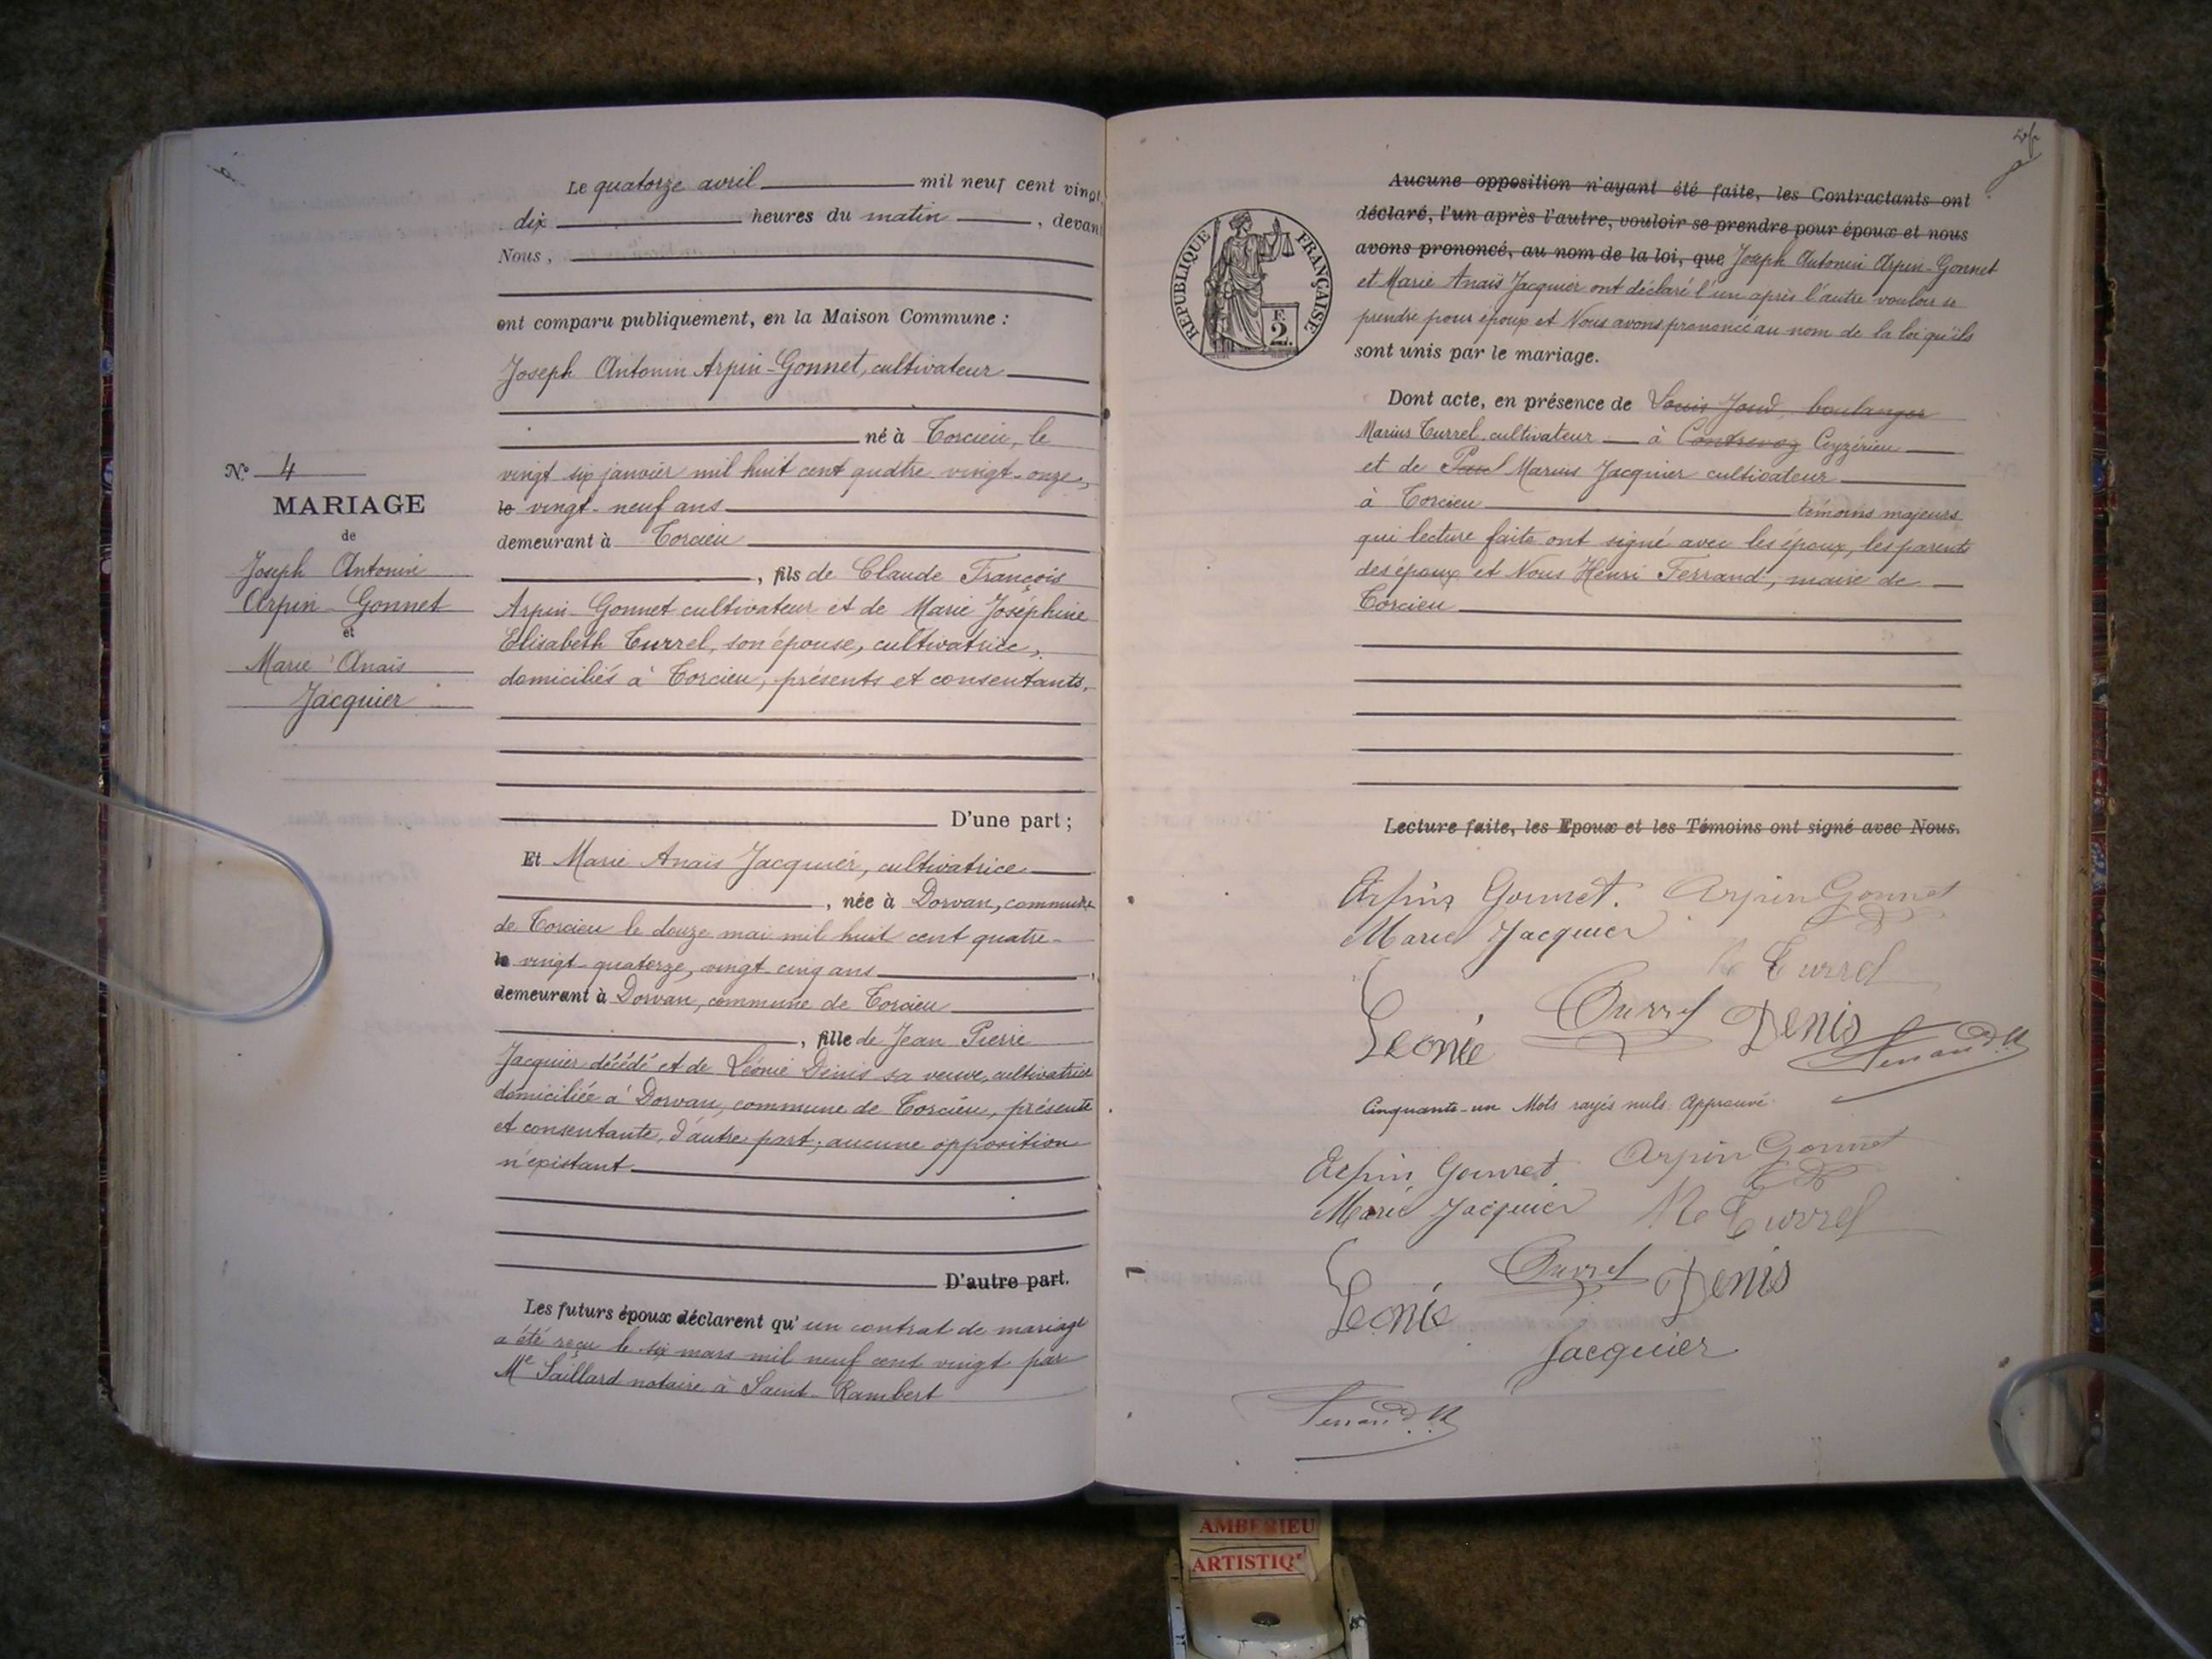 N° 4
MARIAGE
de
Joseph Antonin
Arpin-Gonnet
et
Marie Anaïs
Jacquier
Le quatorze avril mil neuf cent vingt
dix heures du matin, devant
Nous,
ont comparu publiquement, en la Maison Commune :
Joseph Antonin Arpin-Gonnet, cultivateur
né à Torcieu, le
vingt six janvier mil huit cent quatre-vingt-onze,
le vingt-neuf ans
demeurant à Torcieu
, fils de Claude François
Arpin-Gonnet cultivateur et de Marie Joséphine
Elisabeth Turrel, son épouse, cultivatrice,
domiciliés à Torcieu, présents et consentants,
D'une part ;
Et Marie Anaïs Jacquier, cultivatrice
, née à Dorvan, commune
de Torcieu le douze mai mil huit cent quatre-
le vingt-quatorze, vingt-cinq ans
demeurant à Dorvan, commune de Torcieu
, fille de Jean Pierre
Jacquier décédé et de Léonie Denis sa veuve, cultivatrice
domiciliée à Dorvan, commune de Torcieu, présente
et consentante, d'autre part ; aucune opposition
n'existant
D'autre part.
Les futurs époux déclarent qu'un contrat de mariage
a été reçu le six mars mil neuf cent vingt par
Me Saillard notaire à Saint-Rambert
RÉPUBLIQUE FRANÇAISE
F.
2.
Aucune opposition n'ayant été faite, les Contractants ont
déclaré, l'un après l'autre, vouloir se prendre pour époux et nous
avons prononcé, au nom de la loi, que Joseph Antonin Arpin-Gonnet
et Marie Anaïs Jacquier ont déclaré l'un après l'autre vouloir se
prendre pour époux et Nous avons prononcé au nom de la loi qu'ils
sont unis par le mariage.
Dont acte, en présence de Louis Joud, boulanger
Marius Turrel, cultivateur à Contrevoz Ceyzérieu
et de Paul Marius Jacquier cultivateur
à Torcieu témoins majeurs
qui lecture faite ont signé avec les époux, les parents
des époux et Nous Henri Ferrand, maire de
Torcieu
Lecture faite, les Epoux et les Témoins ont signé avec Nous.
Arpin Gonnet. Arpin Gonnet
Marie Jacquier
Turrel
Leonie Turrel Denis
Ferrand H
Cinquante-un Mots rayés nuls. Approuvé
Arpin Gonnet Arpin Gonnet
Marie Jacquier M Turrel
Leonie Turrel Denis
Jacquier
Ferrand H
AMBERIEU
ARTISTIQ